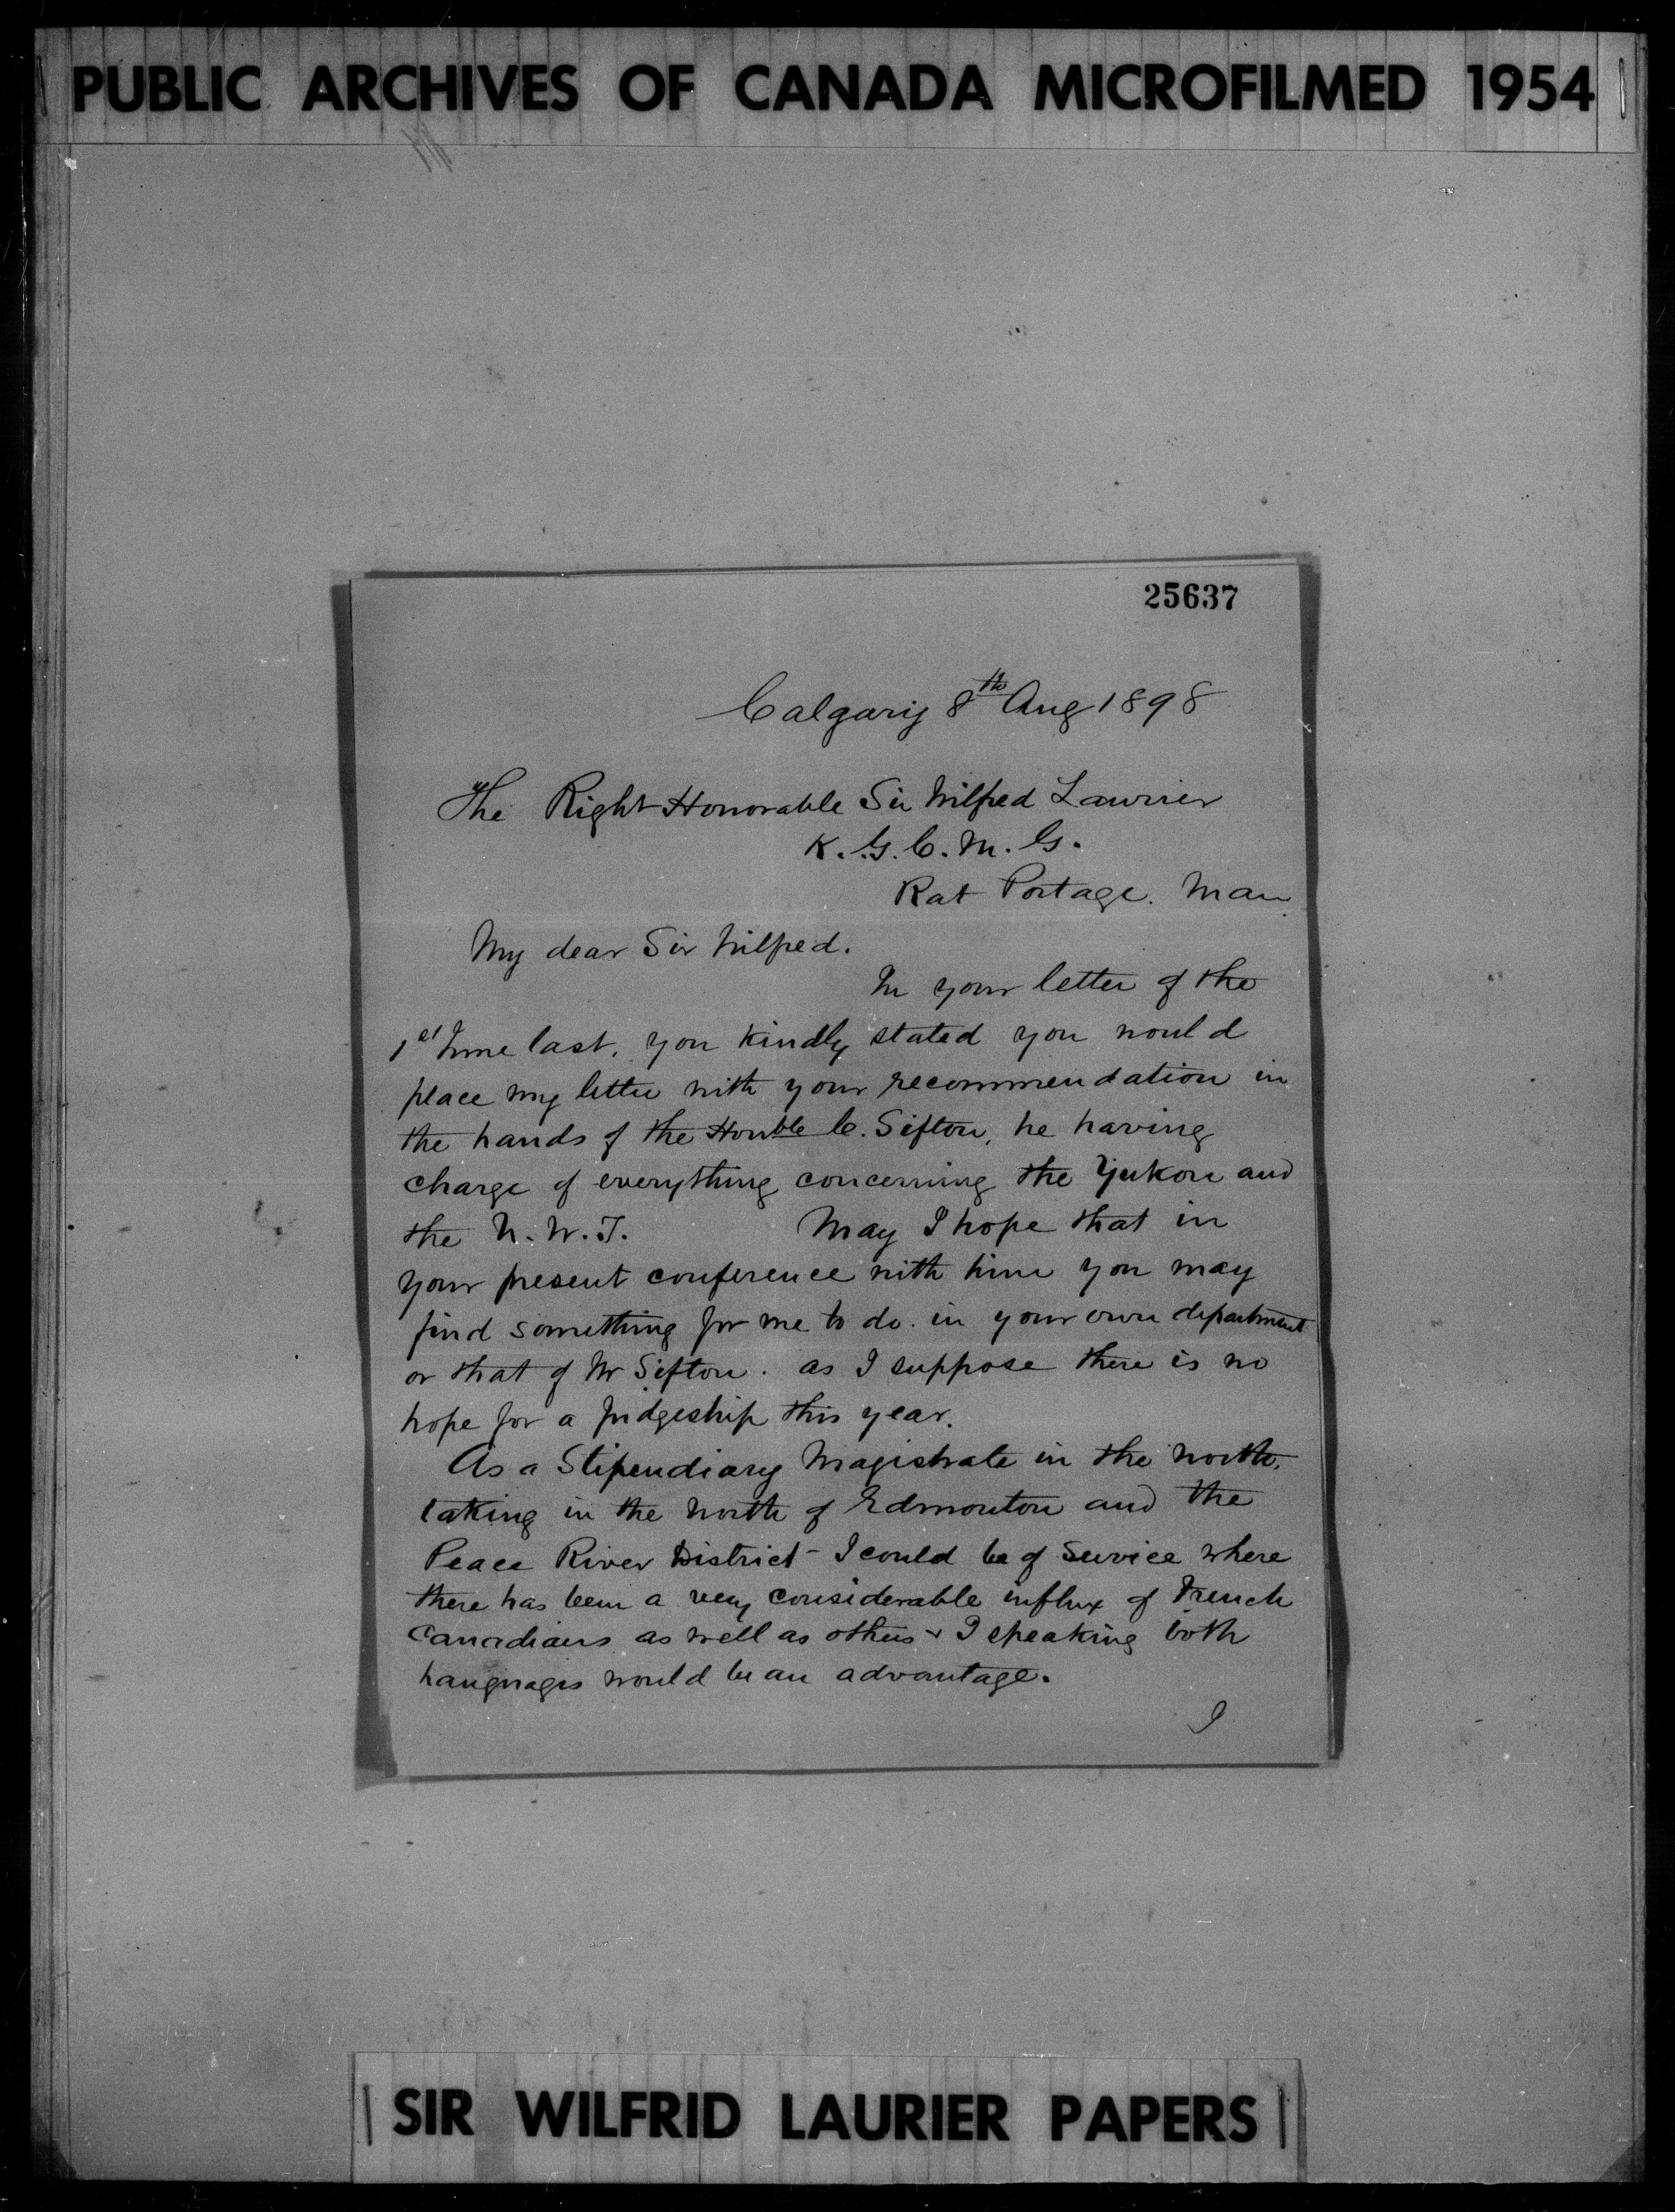 PUBLIC ARCHIVES OF CANADA MICROFILMED 1954
25637
Calgary 8th Aug 1898
The Right Honorable Sir Wilfred Laurier
K.G.C.M.G.
Rat Portage. Man
My dear Sir Wilfred.
In your letter of the
1st June last, you kindly stated you would
place my letter with your recommendation in
the hands of the Honble C. Sifton, he having
charge of everything concerning the Yukon and
the N.W.T. May I hope that in
your present conference with him you may
find something for me to do. in your own department
or that of Mr Sifton. as I suppose there is no
hope for a Judgeship this year.
As a Stipendiary Magistrate in the North.
taking in the North of Edmonton and the
Peace River District - I could be of Service where
there has been a very considerable influx of French
Canadians as well as others & I speaking both
languages would be an advantage.
I
SIR WILFRID LAURIER PAPERS